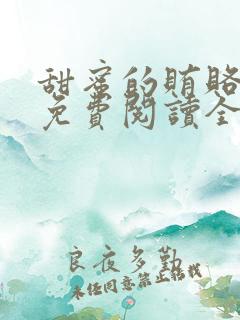 甜蜜的賄賂
免費閱讀全
良夜多勤
未经同意禁止转载